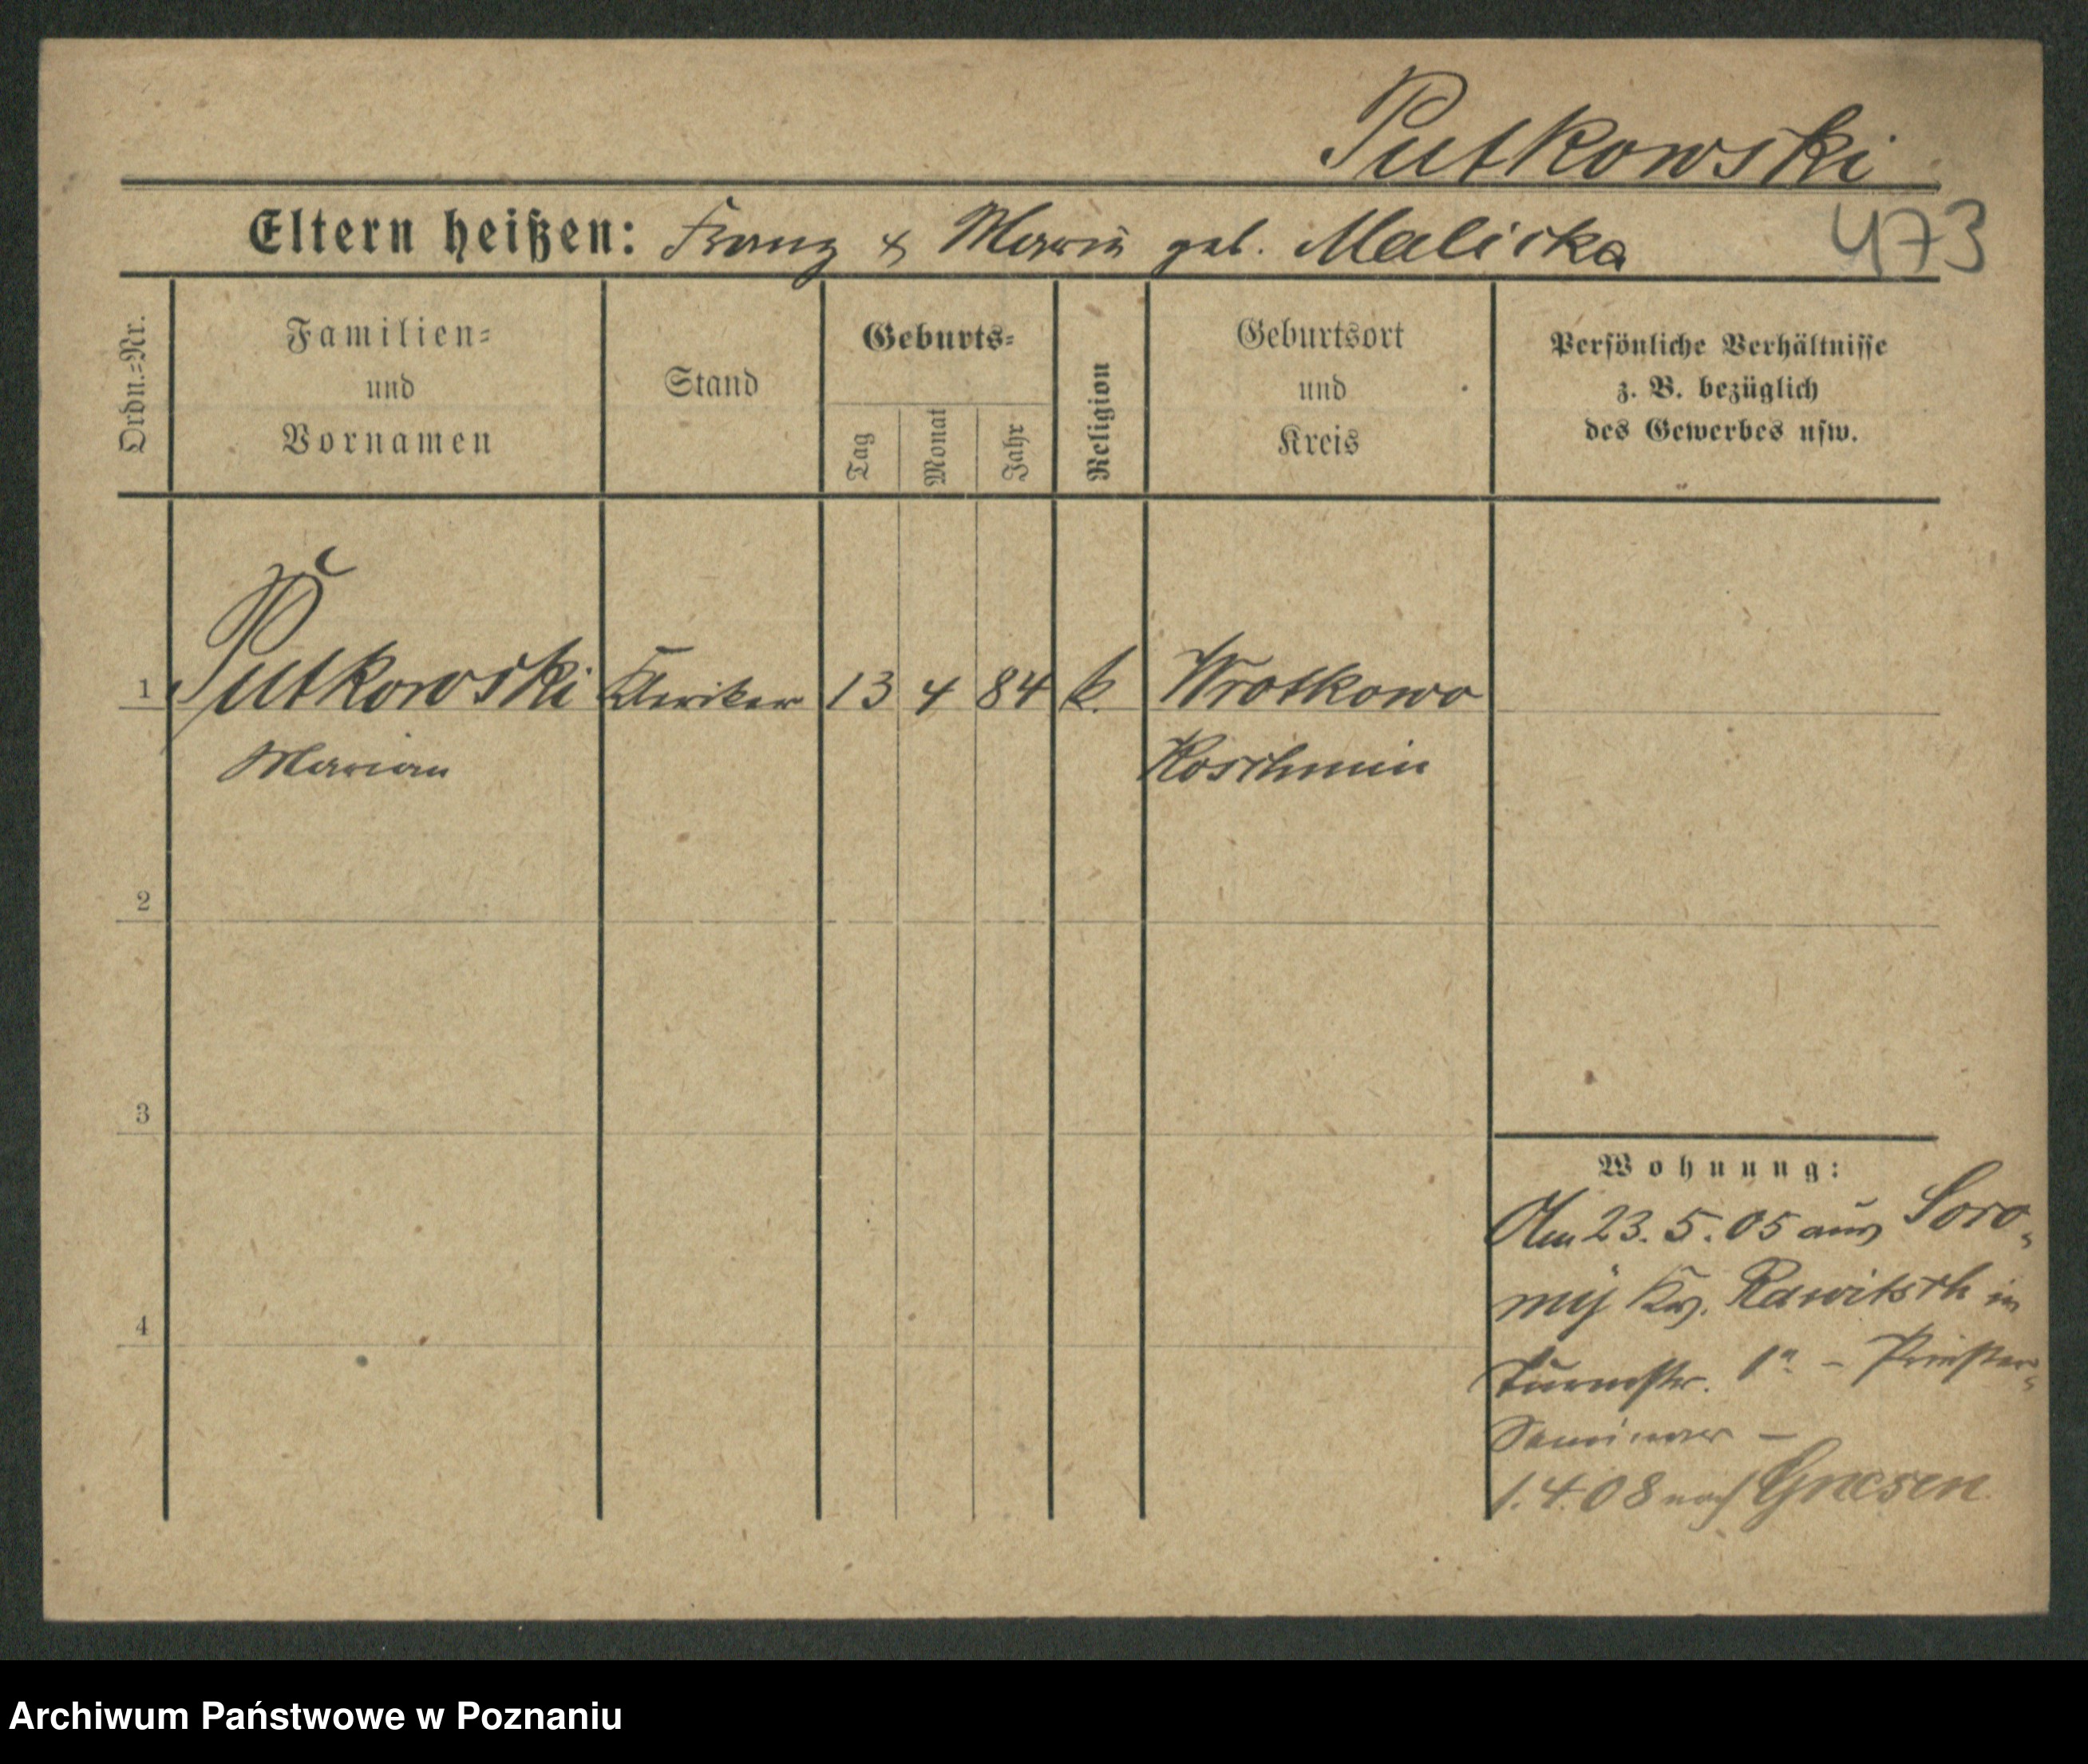 Putkowski
Eltern heißen: Franz & Maria geb. Malicka
473
Ordn.-Nr.
Familien-
und
Vornamen
Stand
Geburts-
Tag
Monat
Jahr
Religion
Geburtsort
und
Kreis
Persönliche Verhältnisse
z. B. bezüglich
des Gewerbes usw.
1 Putkowski Kleriker 13 4 84 k. Wrotkowo
Marian Koschmin
2
3
4
Wohnung:
Am 23. 5. 05 aus Soro-
my Kr. Rawitsch in
Turmstr. 1a - Priester-
Seminar -
1.4.08 nach Gnesen
Archiwum Państwowe w Poznaniu